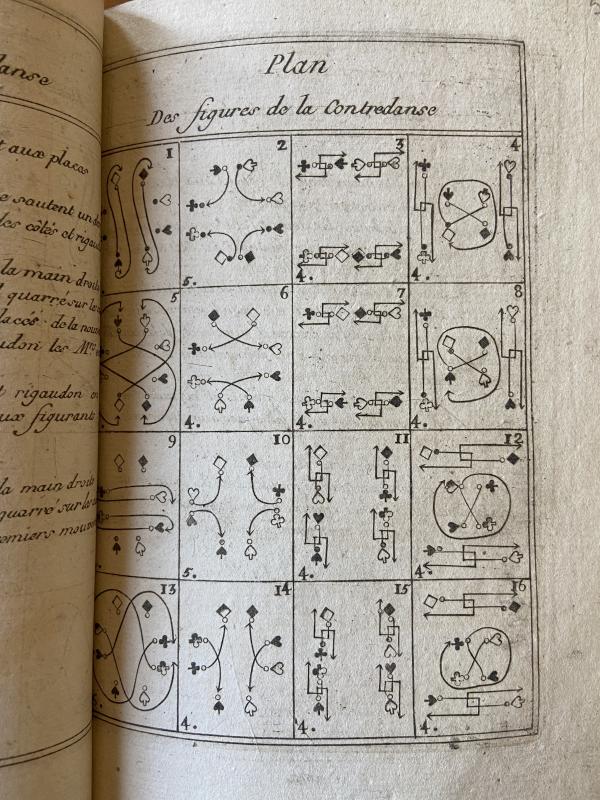 anse
t aux places
e sautent un de
des côtés et rigau
la main droite
l quarré sur les c
lacés. de la nouve
udon les M.rs e
t rigaudon en
ux figurants
la main droite
quarré sur les c
emiers mouve
Plan
Des figures de la Contredanse
1 2 3 4
5. 4. 4.
5 6 7 8
4. 4. 4.
9 10 11 12
5. 4. 4.
13 14 15 16
4. 4. 4.